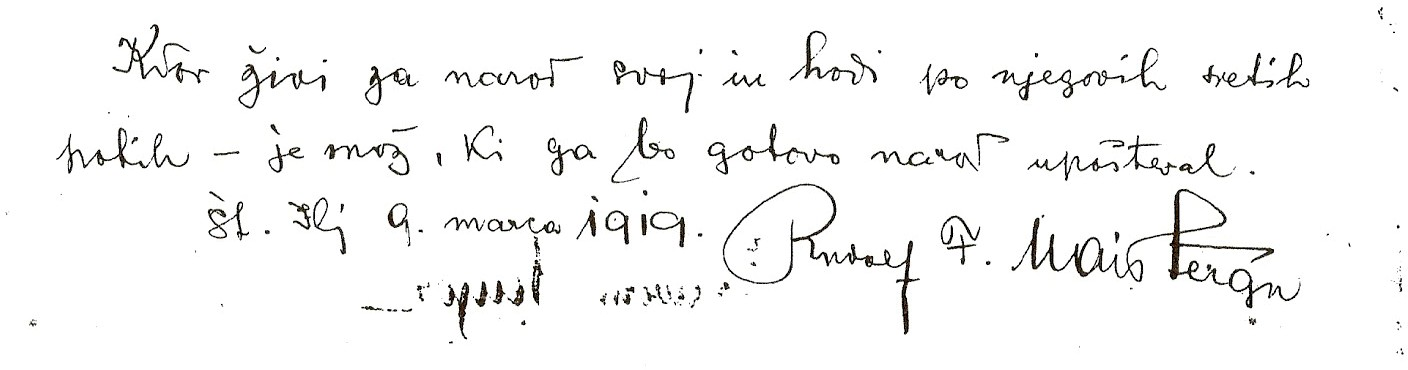 Kdor živi za narod svoj in hodi po njegovih svetih
potih – je mož, ki ga bo gotovo narod upošteval.
Št. Ilj 9. marca 1919. Rudolf F. Maister